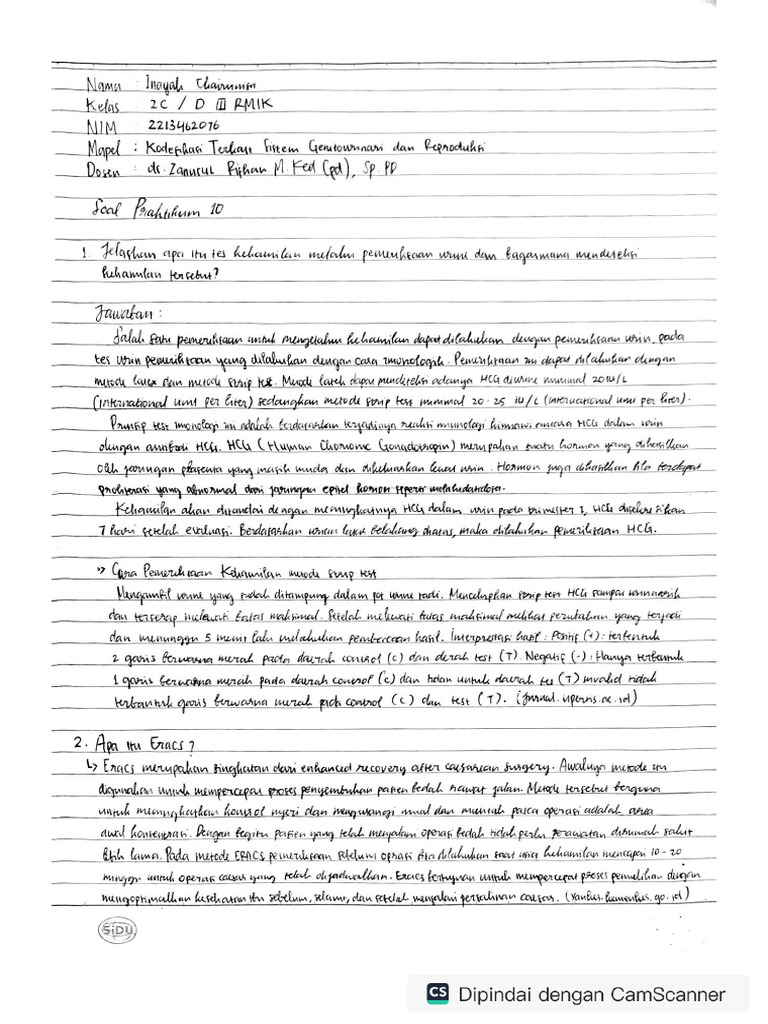 Nama : Inayah Chairunnisa
Kelas : 2C / D III RMIK
NIM : 2213462076
Mapel : Kodefikasi Terkait Sistem Genitourinari dan Reproduksi
Dosen : dr. Zanurul Rijhan M. Ked (pd), Sp. PD
Soal Praktikum 10
1. Jelaskan apa itu tes kehamilan melalui pemeriksaan urine dan bagaimana mendeteksi
kehamilan tersebut?
Jawaban :
Salah satu pemeriksaan untuk mengetahui kehamilan dapat dilakukan dengan pemeriksaan urin, pada
tes urin pemeriksaan yang dilakukan dengan cara imonologik. Pemeriksaan ini dapat dilakukan dengan
metode latex dan metode strip test. Metode latek dapat mendeteksi adanya HCG diurine minimal 20 IU/L
(International unit per liter) sedangkan metode strip test minimal 20-25 IU/L (International unit per liter).
Prinsip test imonologi ini adalah berdasarkan terjadinya reaksi imunologi kimiawi antara HCG dalam urin
dengan antibodi HCG. HCG (Human Chorionic Gonadotropin) merupakan suatu hormon yang dihasilkan
oleh jaringan plasenta yang masih muda dan dikeluarkan lewat urin. Hormon juga dihasilkan bila terdapat
proliferasi yang abnormal dari jaringan epitel korion seperti molahidatidosa.
Kehamilan akan ditandai dengan meningkatnya HCG dalam urin pada trimester I, HCG disekresikan
7 hari setelah evaluasi. Berdasarkan uraian latar belakang diatas, maka dilakukan pemeriksaan HCG.
=> Cara Pemeriksaan Kehamilan metode strip test
Mengambil urine yang sudah ditampung dalam pot urine tadi. Mencelupkan strip test HCG sampai urine naik
dan terserap melewati batas maksimal. Setelah melewati batas maksimal melihat perubahan yang terjadi
dan menunggu 5 menit lalu melakukan pembacaan hasil. Interpretasi hasil : Positif (+) : terbentuk
2 garis berwarna merah pada daerah control (c) dan derah test (T). Negatif (-) : Hanya terbentuk
1 garis berwarna merah pada daerah control (c) dan tidan untuk daerah tes (T) invalid tidak
terbantuk garis berwarna merah pada control (c) dan test (T). (Jurnal.uperns.ac.id)
2. Apa itu Eracs?
↳ Eracs merupakan singkatan dari enhanced recovery after caesarean surgery. Awalnya metode itu
digunakan untuk mempercepat proses penyembuhan patien bedah rawat jalan. Metode tersebut berguna
untuk meningkatkan kontrol nyeri dan mengurangi mual dan muntah pasca operasi adalah area
awal konsentrasi. Dengan begitu patien yang telah menjalani operasi bedah tidak perlu perawatan dirumah sakit
lebih lama. Pada metode ERACS pemeriksaan sebelum oprasi bisa dilakukan saat usia kehamilan mencapai 10-20
minggu untuk operasi caesar yang telah dijadwalkan. Eracs bertujuan untuk mempercepat proses pemulihan dengan
mengoptimalkan kesehatan ibu sebelum, selama, dan setelah menjalani persalinan caesar. (yankes.kemenkes.go.id)
SiDU
CS Dipindai dengan CamScanner